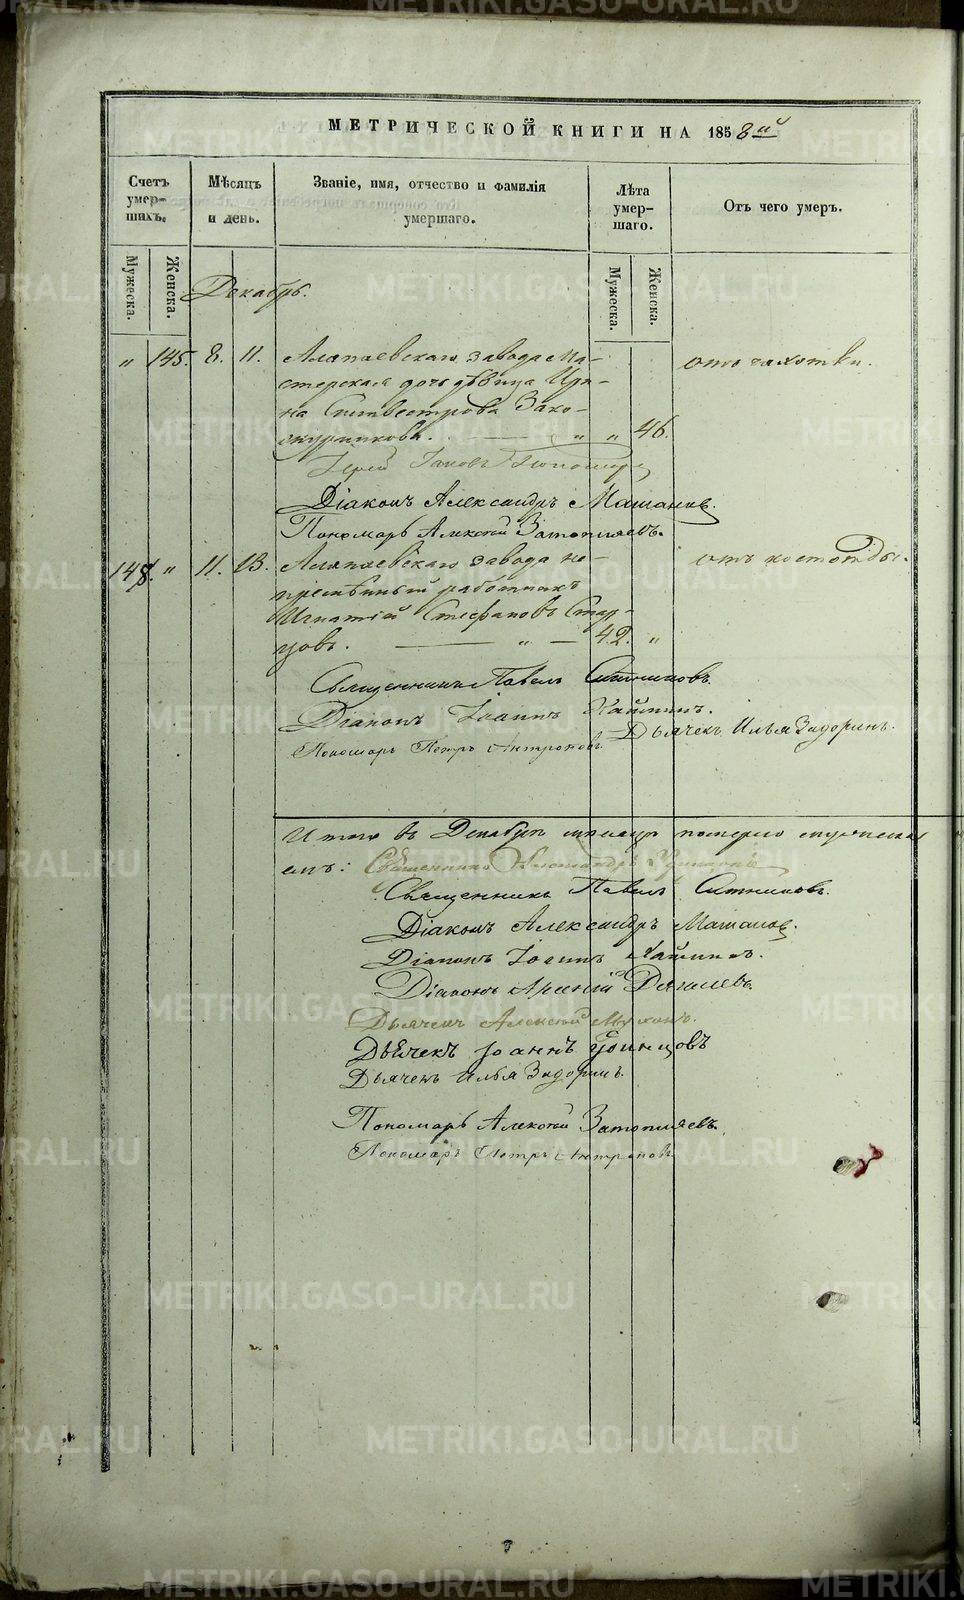 МЕТРИЧЕСКОЙ КНИГИ НА 1858й
Счетъ умер-шихъ.
Мѣсяцъ и день.
Званіе, имя, отчество и фамилія умершаго.
Лѣта умер-шаго.
Отъ чего умеръ.
Мужеска.
Женска.
Мужеска.
Женска.
Декабрь.
" 145. 8. 11. Алапаевскаго завода Ма- отъ чахотки.
стерская дочь дѣвица Ири-
на Сильвестрова
" " 46.
Іерей Іаковъ Пономарев
Діаконъ Александръ Машановъ.
Пономарь Алексѣй Затопляевъ.
148. " 11. 13. Алапаевскаго завода не- отъ
пременный работникъ
Игнатій Стефановъ Стар-
цовъ. " 42. "
Священникъ Павелъ Ситниковъ.
Діаконъ Іоаннъ
Дьячекъ Илья Задоринъ.
Пономарь Петръ Антроповъ
Итого въ Декабрѣ месяцѣ померло мужеска
Священникъ Александръ
Священникъ Павелъ Ситниковъ.
Діаконъ Александръ Машановъ.
Діаконъ Іоаннъ
Діаконъ Арсеній Дягилевъ.
Дьячекъ Алексѣй
Дьячекъ Іоаннъ Удинцовъ
Дьячекъ Илья Задоринъ.
Пономарь Алексѣй Затопляевъ.
Пономарь Петръ Антроповъ
METRIKI.GASO-URAL.RU